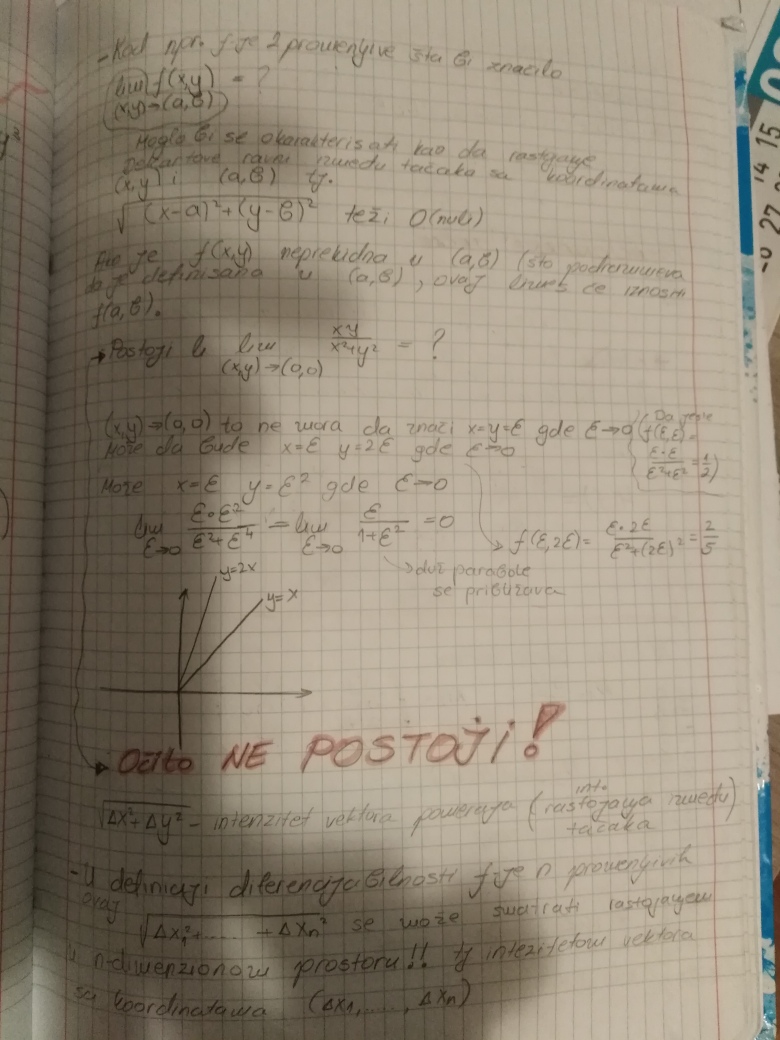 - Kod npr. f-je 2 promenjive šta bi značilo
lim f(x,y) = ?
(x,y)→(a,b)
Moglo bi se okarakterisati kao da rastojanje
Dekartove ravni između tačaka sa koordinatama
(x,y) i (a,b) tj.
√(x-a)²+(y-b)² teži 0 (nuli)
Ako je f(x,y) neprekidna u (a,b) (što podrazumeva
da je definisana u (a,b), ovaj limes će iznositi
f(a,b).
→ Postoji li lim xy/x²+y² = ?
(x,y)→(0,0)
(x,y)→(0,0) to ne mora da znači x=y=ε gde ε→0 (Da jeste f(ε,ε)= ε·ε/ε²+ε² = 1/2)
može da bude x=ε y=2ε gde ε→0
Može x=ε y=ε² gde ε→0
lim ε→0 ε·ε²/ε²+ε⁴ = lim ε→0 ε/1+ε² = 0
→ f(ε,2ε) = ε·2ε/ε²+(2ε)² = 2/5
→ duž parabole
se približava
y=2x
y=x
Očito NE POSTOJI!
√Δx²+Δy² - intenzitet vektora pomeraja (rastojanja između
tačaka
- U definiciji diferencijabilnosti f-je n promenjivih
ovaj √Δx₁²+......+Δxn² se može smatrati rastojanjem
u n-dimenzionom prostoru!! tj intezitetom vektora
sa koordinatama (Δx₁,....., Δxn)
14 15
27